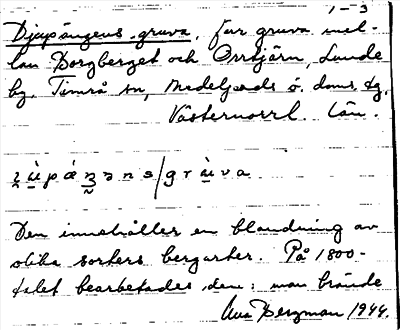 1-3
Djupängens gruva, fur gruva mel-
lan Borgberget och Orrtjärn, Lunde
by. Timrå sn, Medelpads ö. doms. tg,
Västernorrl. län.
gruva
Den innehåller en blandning av
olika sorters bergarter. På 1800-
talet bearbetades den: man brände
Bergman 1944.